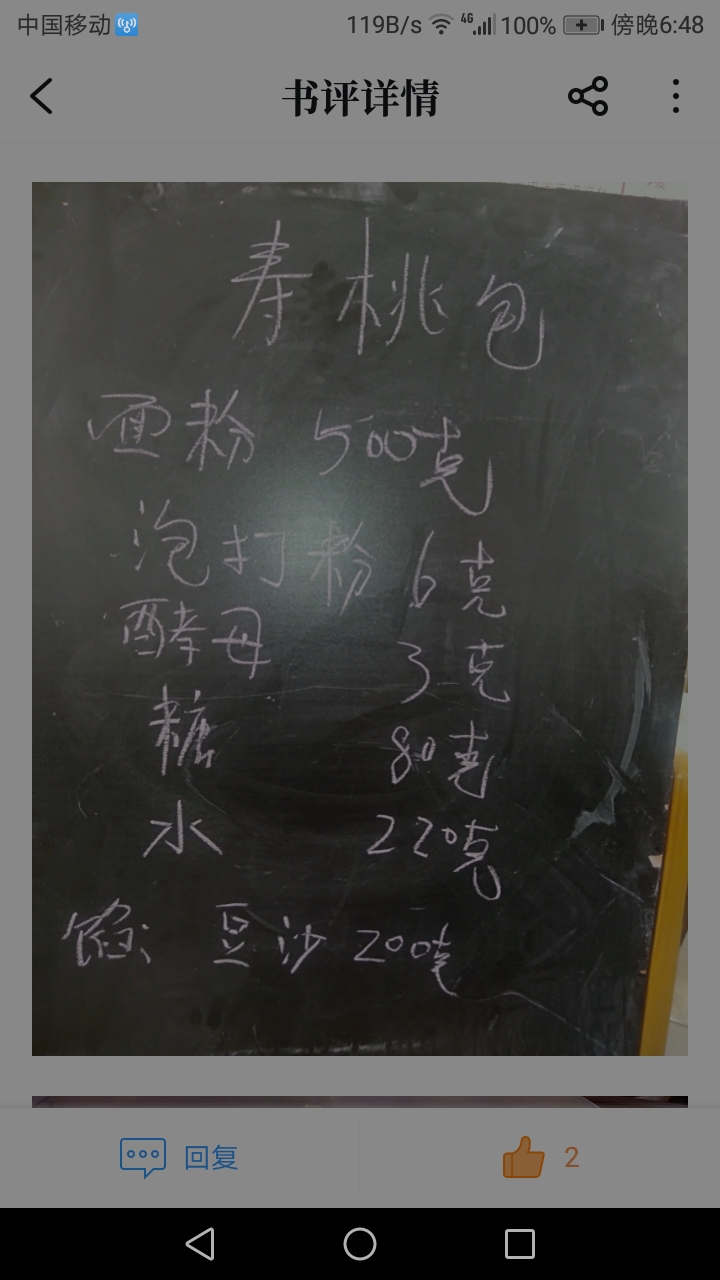 中国移动 119B/s 4G 100% 傍晚6:48
书评详情
寿桃包
面粉 500克
泡打粉 6克
酵母 3克
糖 80克
水 220克
馅: 豆沙 200克
回复 2